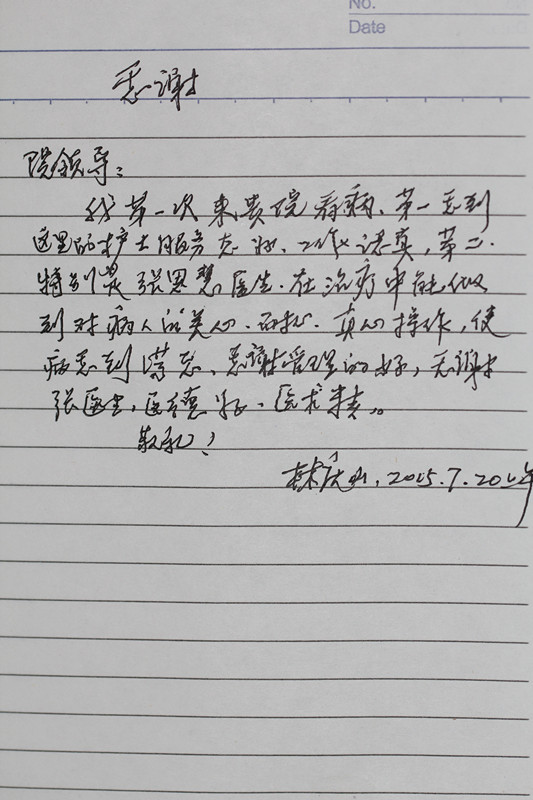 No.
Date
感谢
院领导：
我第一次来贵院看病、第一感到
这里的护士服务态好、工作认真，第二.
特别是张思慧医生.在治疗中能做
到对病人的关心.耐心.真心操作，使
病感到满意、感谢管理的好，感谢
张医生，医德好、医术精。
敬礼！
2025.7.20